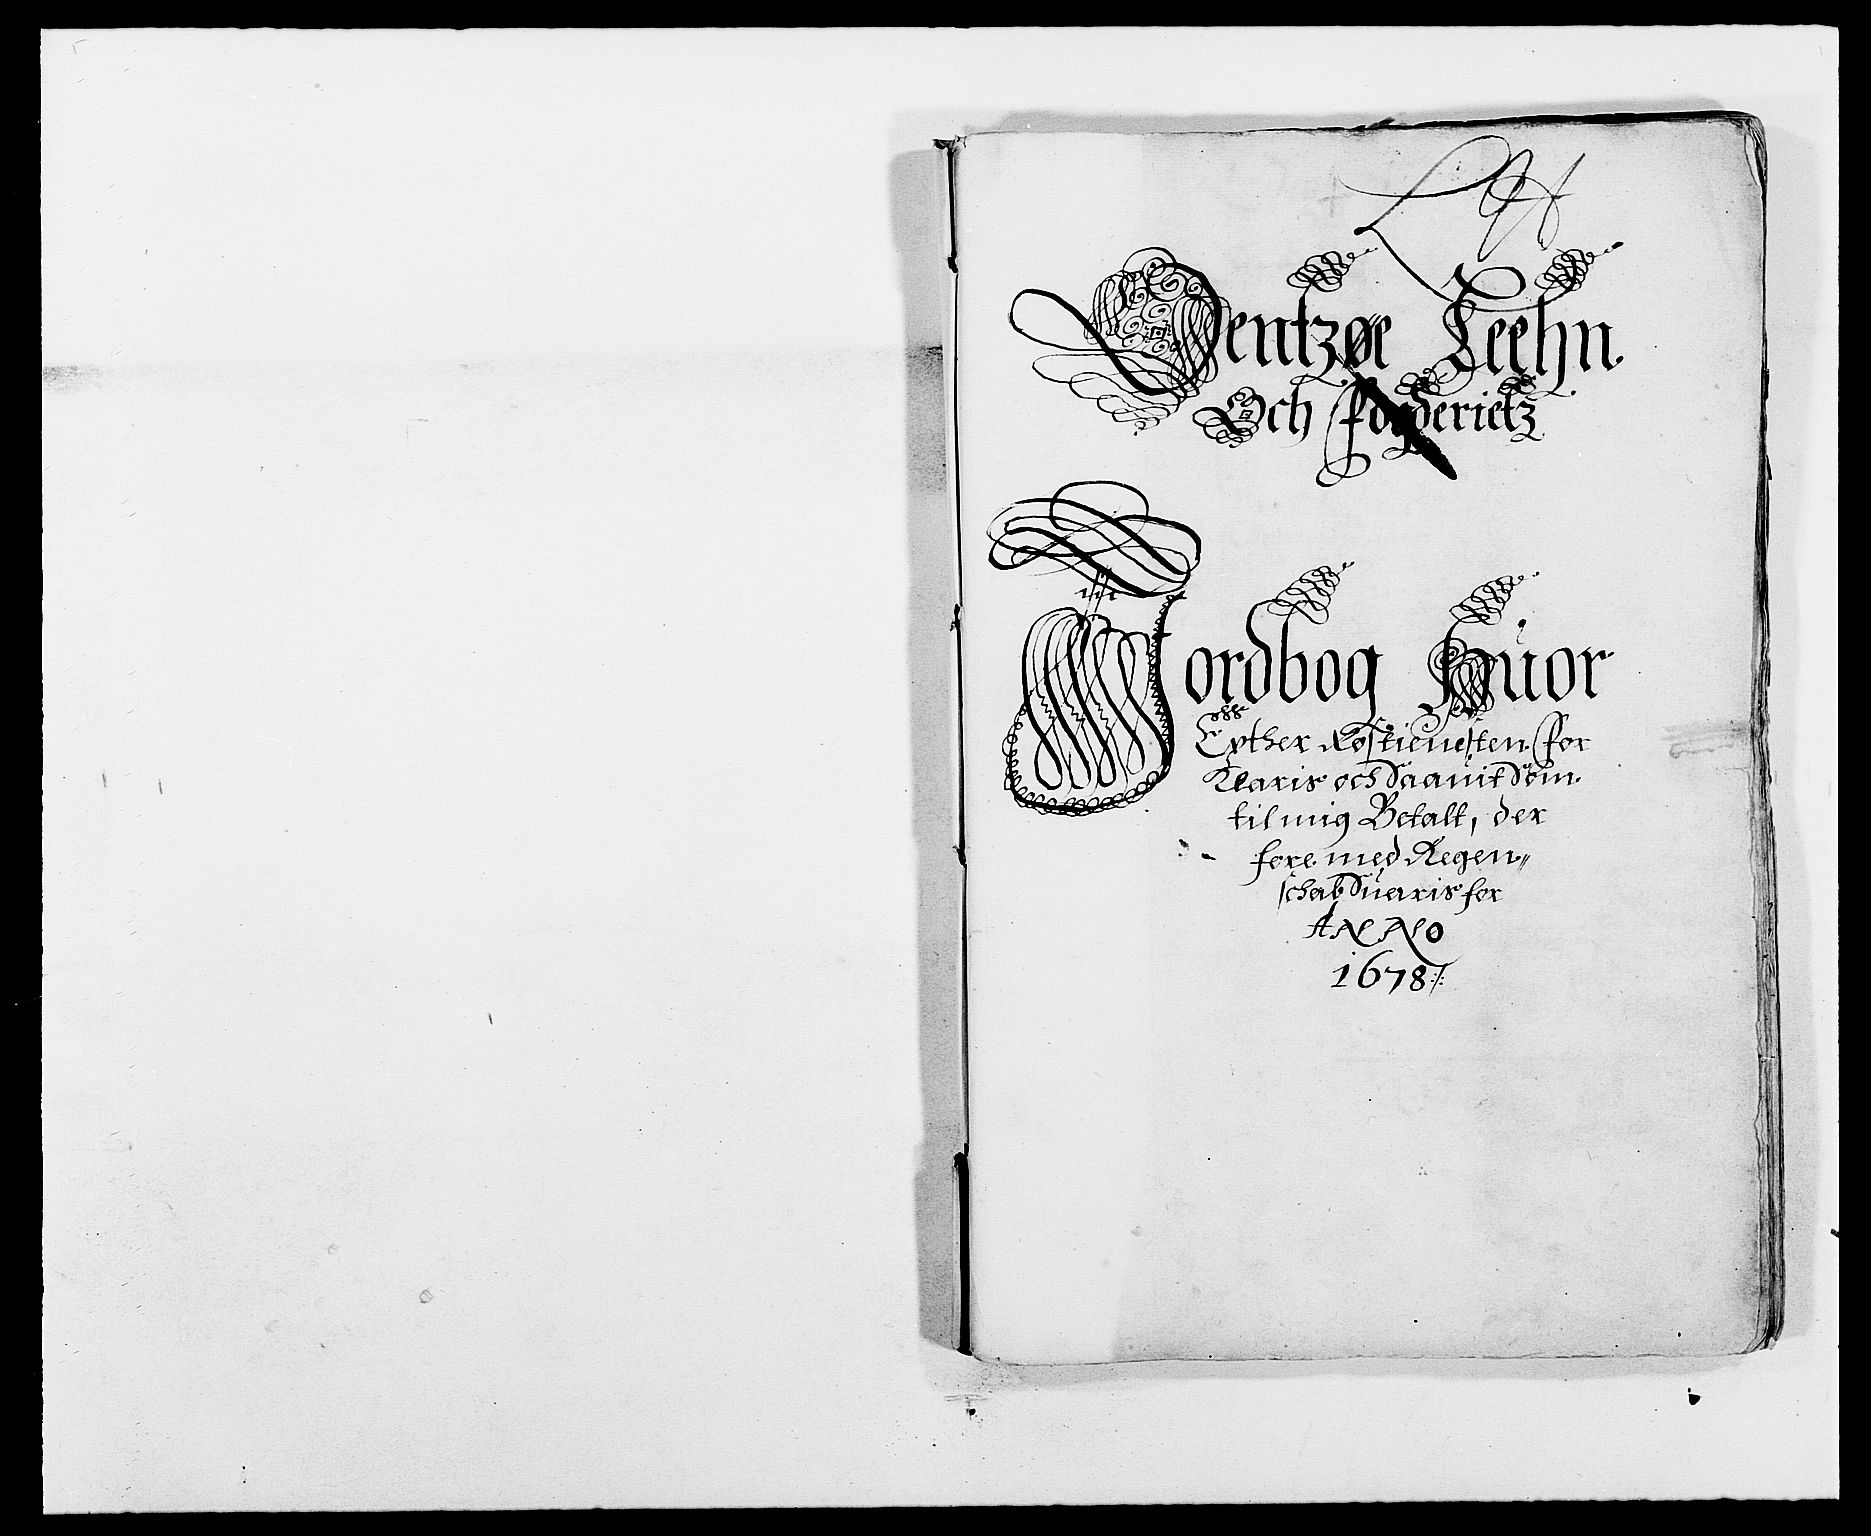 Hentzøe Leehn.
Och Foyderietz
Jordbog Huor
Epther Rostienesten for
Klaris och Saauit Som
til mig Betalt, der
fore med Regen„
schab Suaris for
ANNO
1678 ⁒